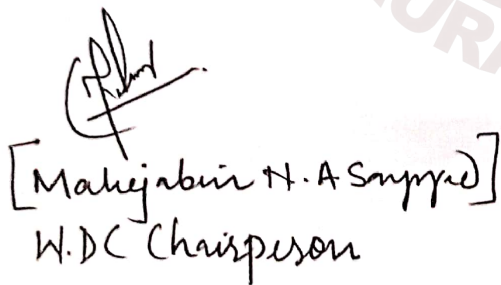 [Mahejabin N. A Sayyad]
W.DC Chairperson